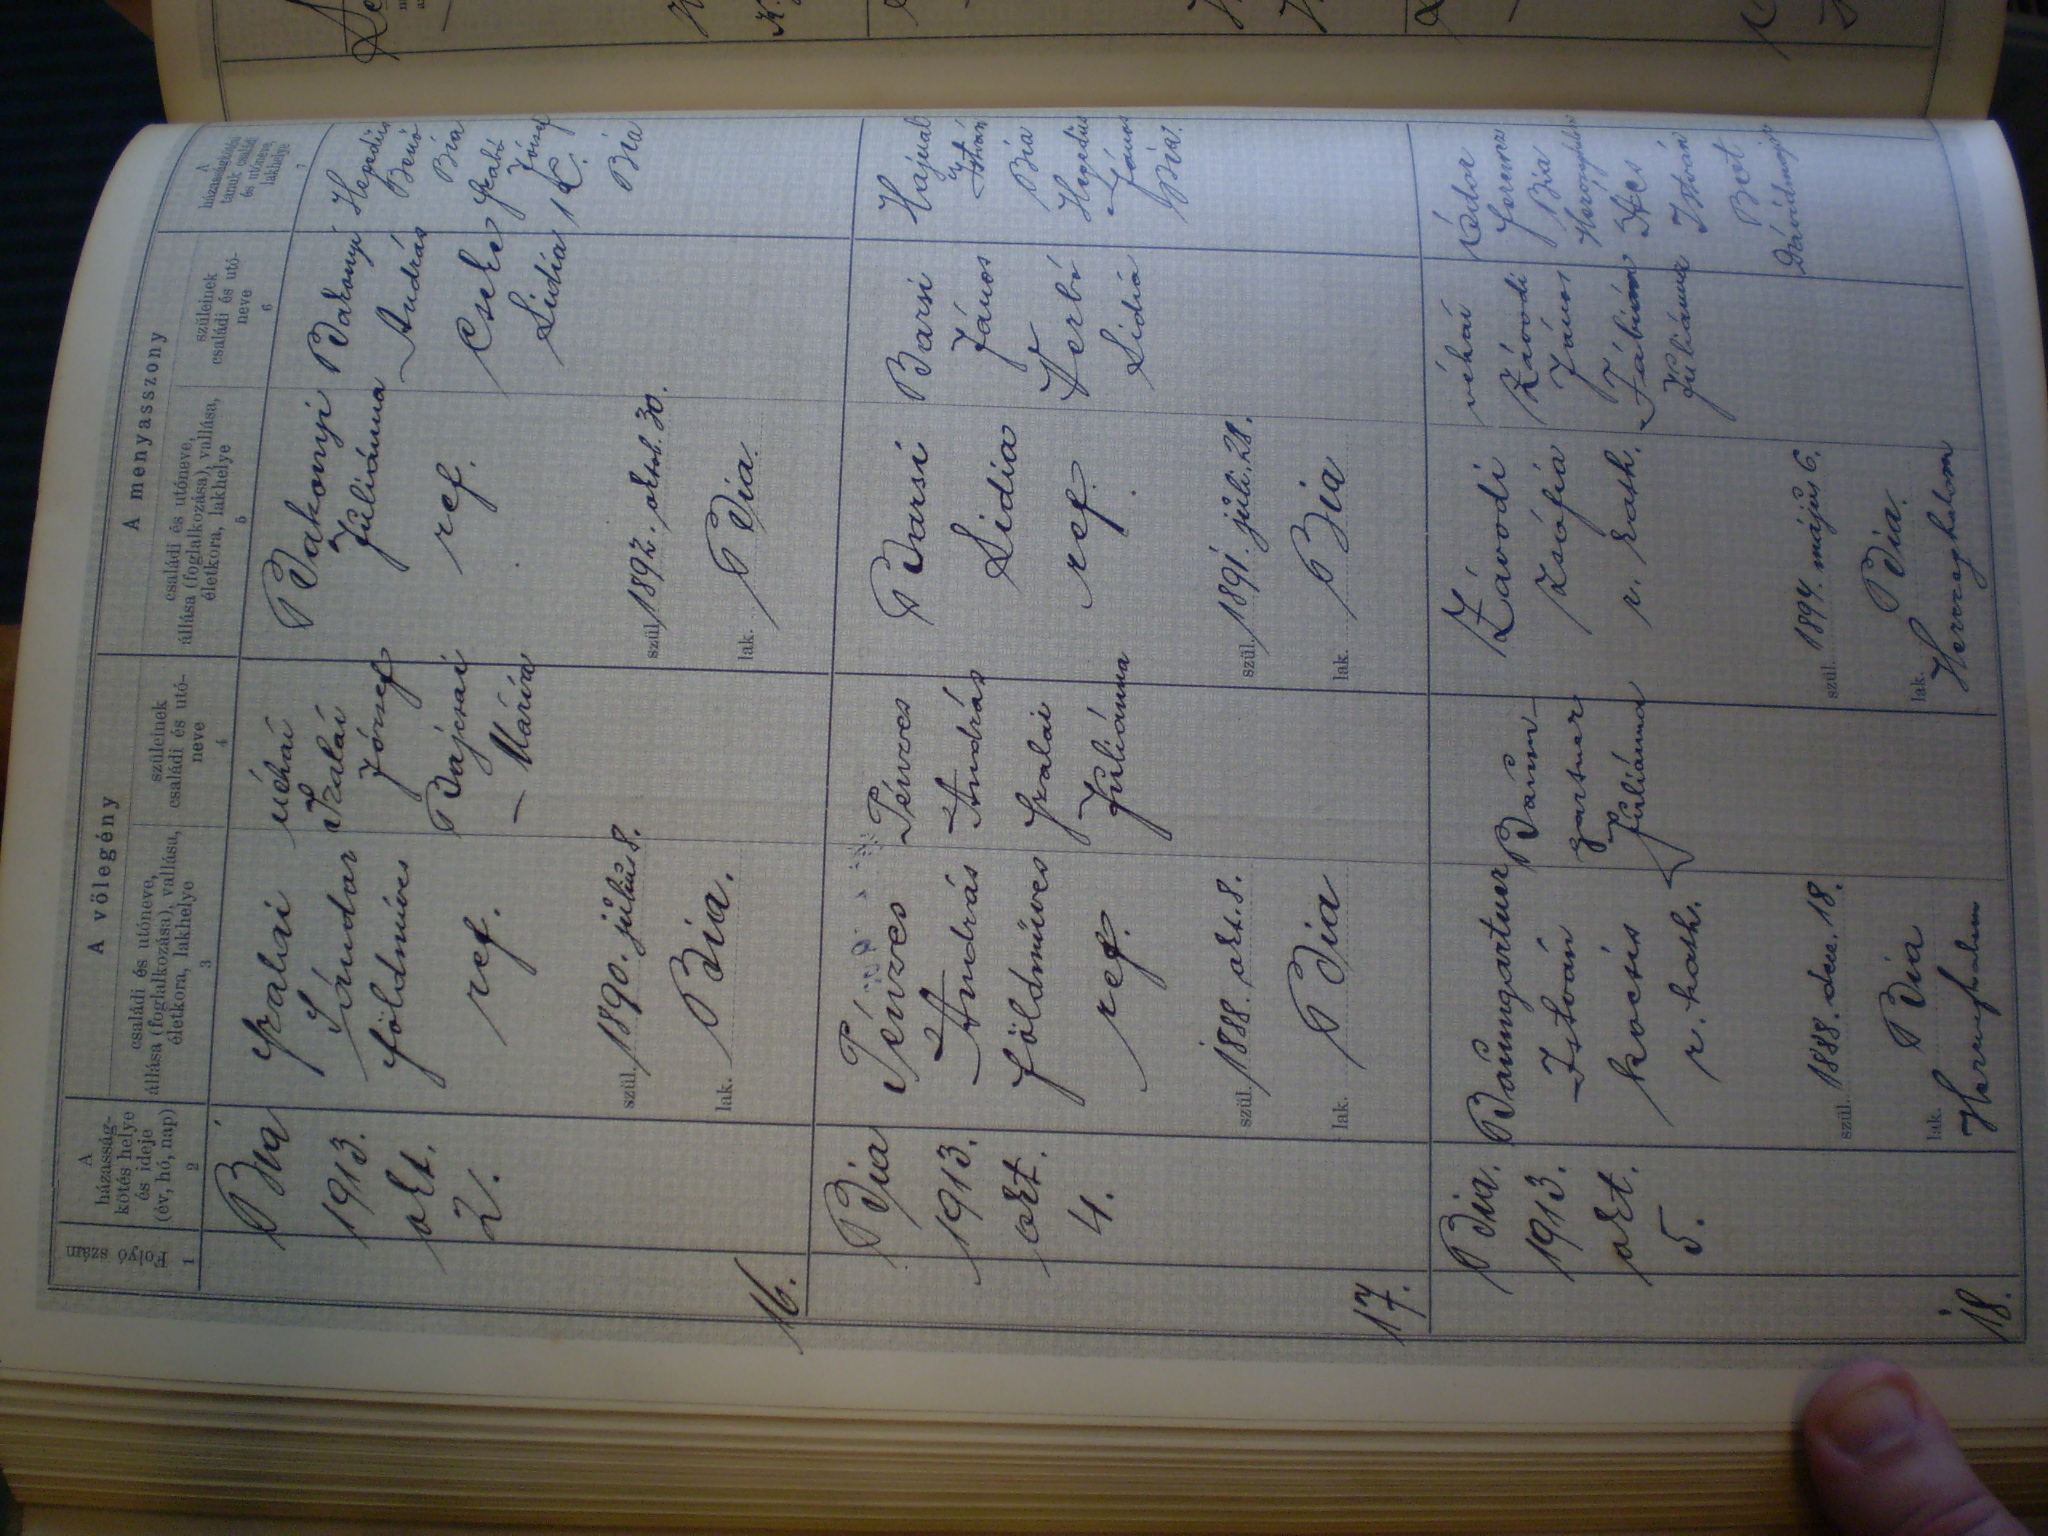 Folyó szám
1
A
házasság-
kötés helye
és ideje
(év, hó, nap)
2
A vőlegény
családi és utóneve,
állása (foglalkozása), vallása,
életkora, lakhelye
3
szüleinek
családi és utó-
neve
4
A menyasszony
családi és utóneve,
állása (foglalkozása), vallása,
életkora, lakhelye
5
szüleinek
családi és utó-
neve
6
A
házasságkötési
tanuk családi
és utóneve,
lakhelye
7
16.
Bia
1913.
okt.
2.
Szalai
Sándor
földmíves
ref.
szül. 1890. július 8.
lak. Bia.
néhai
Szalai
József
Bajcsai
Mária
Bakonyi
Juliánna
ref.
szül. 1892. októb. 30.
lak. Bia.
Bakonyi
András
Cseke
Sidia
Hegedüs
Benő
Bia
Szabó
József
K.
Bia
17.
Bia
1913.
okt.
4.
Pénzes
András
földmíves
ref.
szül. 1888. okt. 8.
lak. Bia
Pénzes
András
Szalai
Juliánna
Barsi
Sidia
ref.
szül. 1891. júli. 28.
lak. Bia
Barsi
János
Verbó
Sidia
Hájnal
István
Bia
Hegedüs
János
Bia.
18.
Bia.
1913.
okt.
5.
Baumgartner
István
kocsis
r. kath.
szül. 1888. dec. 18.
lak. Bia
Herceghalom
Baum-
gartner
Juliánna
Závodi
Zsófia
r. kath.
szül. 1894. május 6.
lak. Bia.
Herceghalom
néhai
Závodi
János
Fábián
Juliánna
Nádor
Ferencz
Bia
István